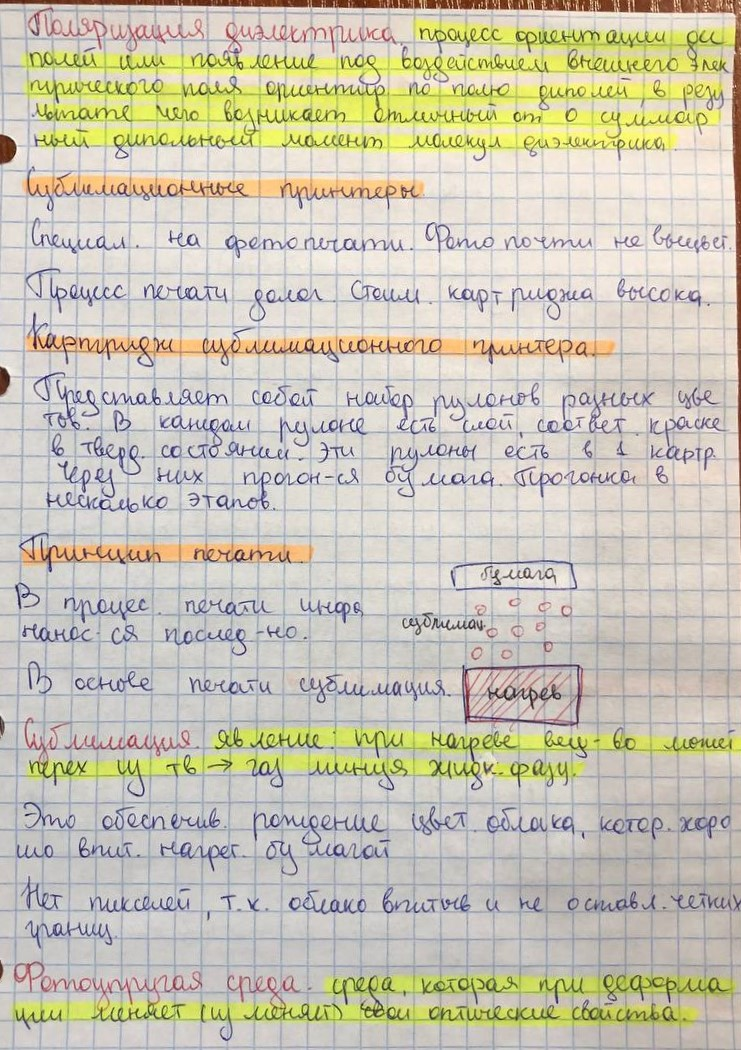 Поляризация диэлектрика. процесс ориентации ди
полей или появление под воздействием внешнего элек
трического поля ориентир по полю диполей, в резу
льтате чего возникает отличный от 0 суммар
ный дипольный момент молекул диэлектрика.
Сублимационные принтеры
Специал. на фотопечати. Фото почти не выцвет.
Процесс печати долог. Стоим. картриджа высока.
Картридж сублимационного принтера.
Представляет собой набор рулонов разных цве
тов. В каждом рулоне есть слой, соответ. краске
в тверд. состоянии. Эти рулоны есть в 1 картр.
Через них прогон-ся бумага. Прогонка в
несколько этапов.
Принцип печати.
бумага
В процес. печати инфа
сублимац.
нанос-ся послед-но.
В основе печати сублимация.
нагрев
Сублимация. явление: при нагреве вещ-во может
перех из тв → газ минуя жидк. фазу.
Это обеспечив. рождение цвет. облака, котор. хоро
шо впит. нагрет. бумагой
Нет пикселей, т.к. облако впитыв и не оставл. четких
границ.
Фотоупругая среда. среда, которая при деформа
ции меняет (изменяет) свои оптические свойства.